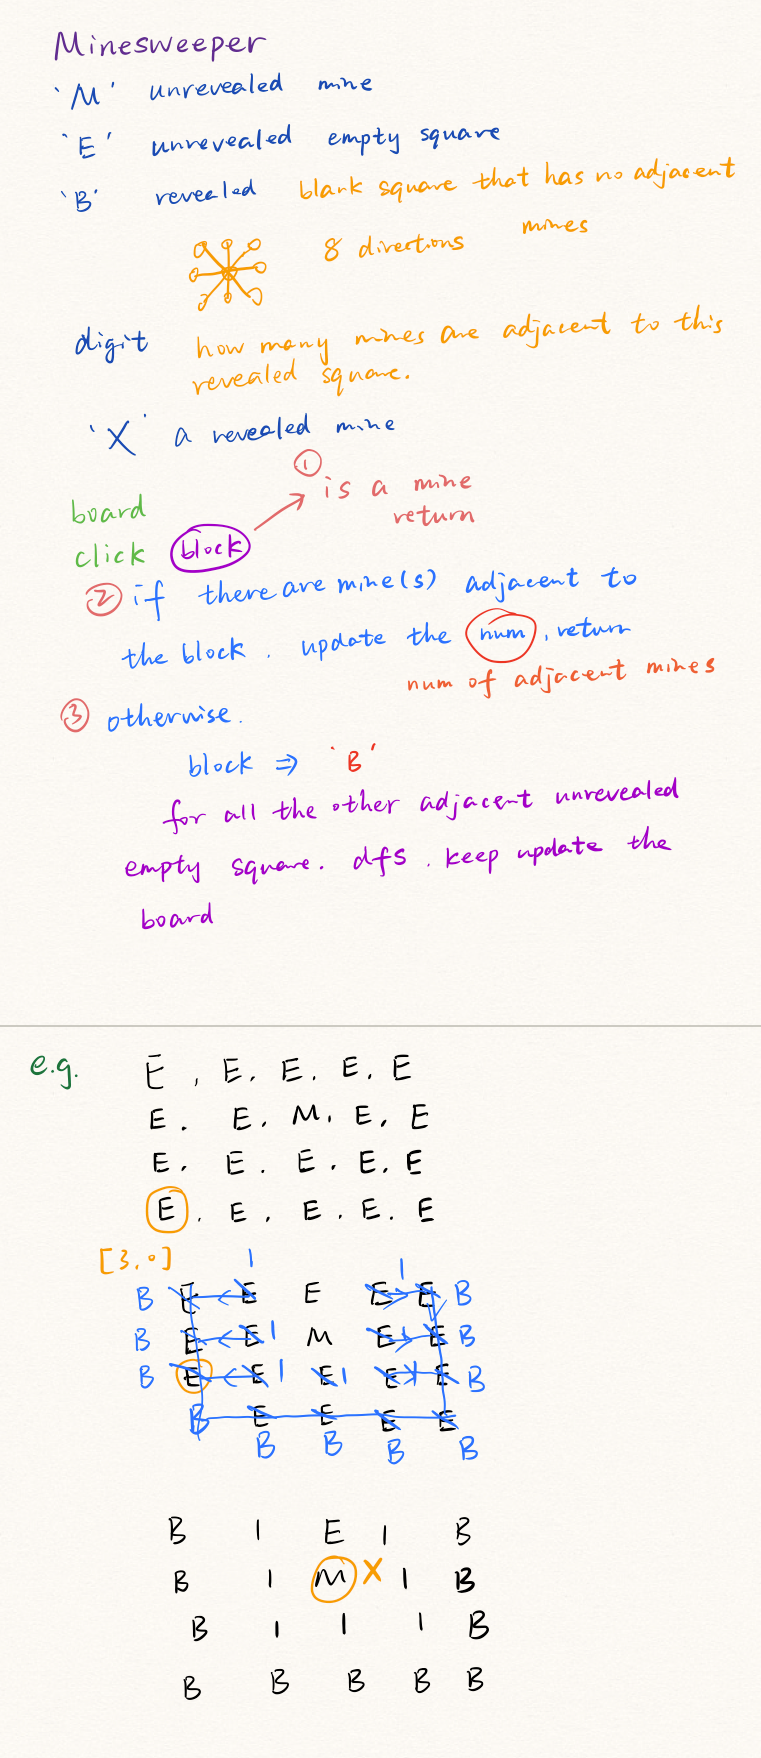 Minesweeper
'M' unrevealed mine
'E' unrevealed empty square
'B' revealed blank square that has no adjacent
8 directions mines
digit how many mines are adjacent to this
revealed square.
'X' a revealed mine
①
is a mine
board return
click block
② if there are mine(s) adjacent to
the block. update the num, return
num of adjacent mines
③ otherwise.
block ⇒ 'B'
for all the other adjacent unrevealed
empty square. dfs. keep update the
board
e.g. E, E, E, E, E
E, E, M, E, E
E, E, E, E, E
E, E, E, E, E
[3,0] 1 1
B E E E E E B
B E E 1 M E 1 E B
B E E 1 E 1 E 1 E B
B E E E E
B B B B
B 1 E 1 B
B 1 M X 1 B
B 1 1 1 B
B B B B B